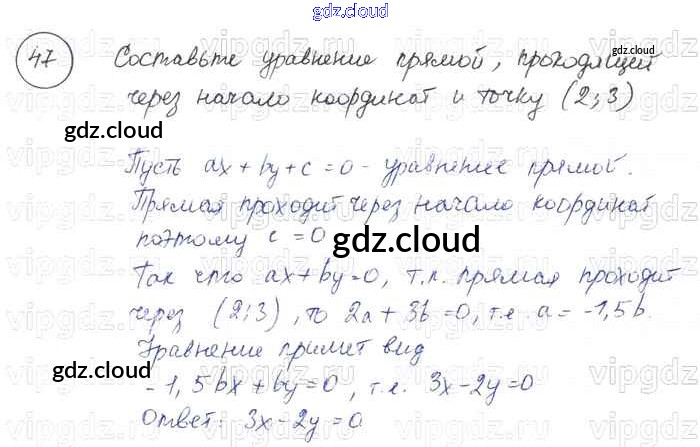 gdz.cloud
47 Составьте уравнение прямой, проходящей
gdz.cloud
через начало координат и точку (2;3)
gdz.cloud
Пусть ax + by + c = 0 - уравнение прямой.
Прямая проходит через начало координат
поэтому c = 0
gdz.cloud
Так что ax + by = 0, т.к. прямая проходит
через (2;3), то 2a + 3b = 0, т.е. a = -1,5b.
Уравнение примет вид
gdz.cloud
-1,5bx + by = 0, т.е. 3x - 2y = 0
Ответ: 3x - 2y = 0
gdz.cloud